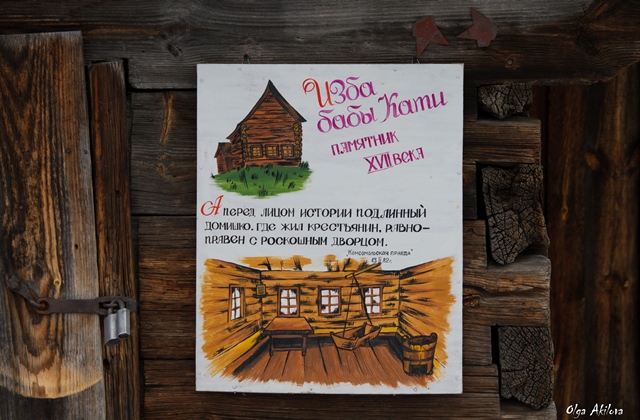 Изба
бабы Кати
памятник
XVII века
А перед лицом истории подлинный
домишко, где жил крестьянин, равно-
правен с роскошным дворцом.
„Комсомольская правда"
Olga Akilova